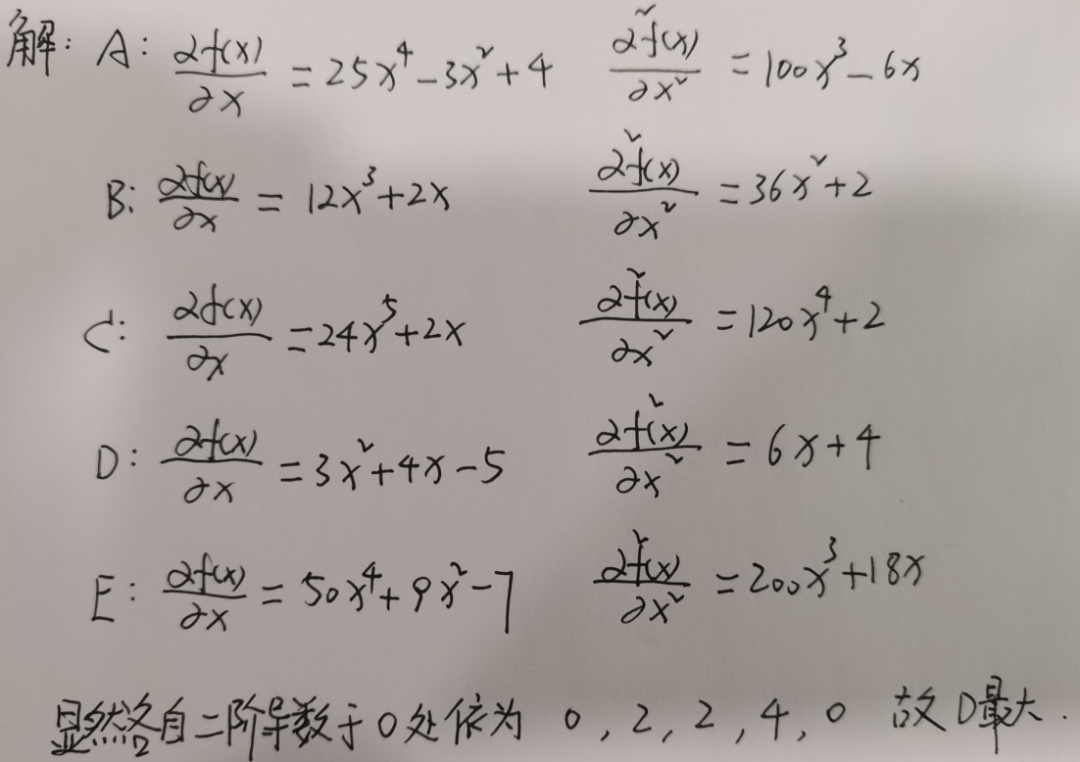 解: A: ∂f(x)/∂x = 25x⁴-3x²+4 ∂²f(x)/∂x² = 100x³-6x
B: ∂f(x)/∂x = 12x³+2x ∂²f(x)/∂x² = 36x²+2
C: ∂f(x)/∂x = 24x⁵+2x ∂²f(x)/∂x² = 120x⁴+2
D: ∂f(x)/∂x = 3x²+4x-5 ∂²f(x)/∂x² = 6x+4
E: ∂f(x)/∂x = 50x⁴+9x²-7 ∂²f(x)/∂x² = 200x³+18x
显然各自二阶导数于0处依为 0,2,2,4,0 故D最大.